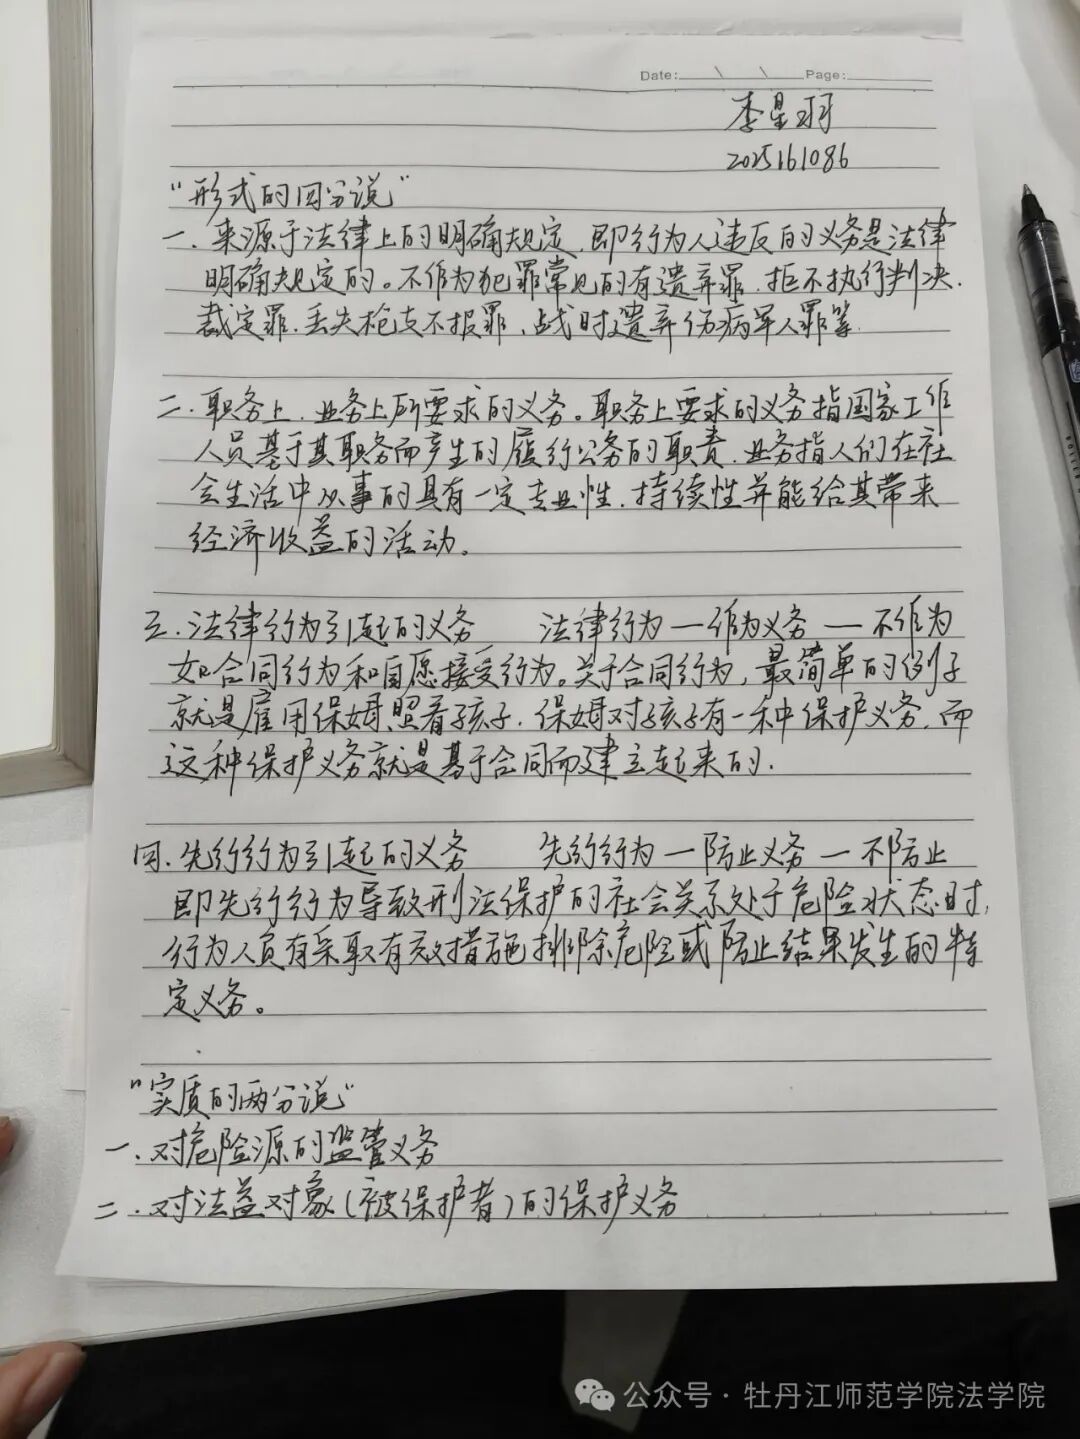 Date: \ \ Page:
李星羽
2025161086
"形式的四分说"
一.来源于法律上的明确规定,即行为人违反的义务是法律
明确规定的。不作为犯罪常见的有遗弃罪.拒不执行判决.
裁定罪.丢失枪支不报罪、战时遗弃伤病军人罪等.
二.职务上.业务上所要求的义务。职务上要求的义务指国家工作
人员基于其职务而产生的履行公务的职责.业务指人们在社
会生活中从事的具有一定专业性.持续性并能给其带来
经济收益的活动。
三.法律行为引起的义务 法律行为—作为义务—不作为
如合同行为和自愿接受行为。关于合同行为,最简单的例子
就是雇用保姆照看孩子.保姆对孩子有一种保护义务.而
这种保护义务就是基于合同而建立起来的.
四.先行行为引起的义务 先行行为—防止义务—不防止
即先行行为导致刑法保护的社会关系处于危险状态时,
行为人员有采取有效措施排除危险或防止结果发生的特
定义务。
"实质的两分说"
一.对危险源的监管义务
二.对法益对象(被保护者)的保护义务
公众号·牡丹江师范学院法学院